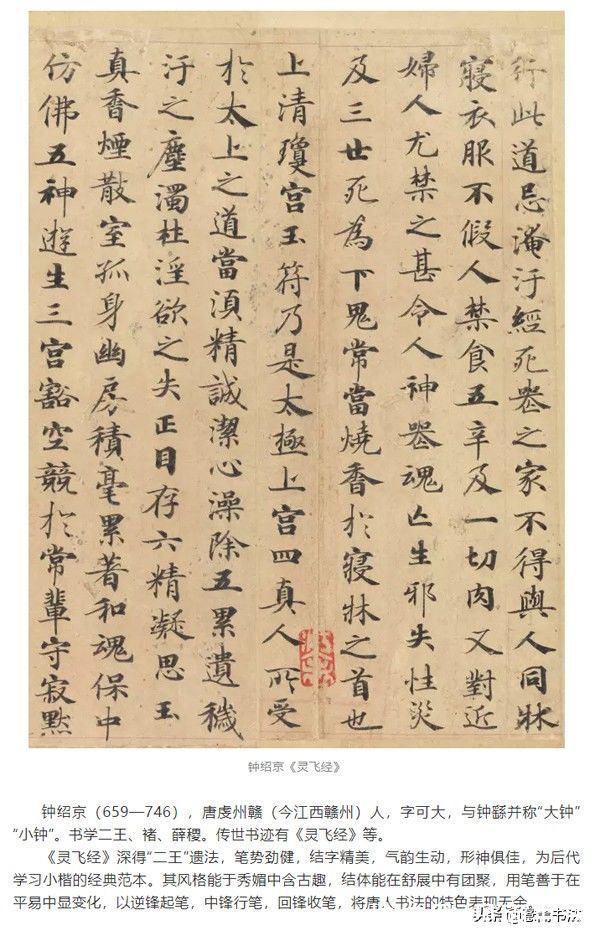 行此道忌淹汙經死喪之家不得與人同牀
寢衣服不假人禁食五辛及一切肉又對近
婦人尤禁之甚令人神喪魂亡生邪失性災
及三世死為下鬼常當燒香於寢牀之首也
上清瓊宮玉符乃是太極上宮四真人所受
於太上之道當須精誠潔心澡除五累遺穢
汙之塵濁杜淫欲之失正目存六精凝思玉
真香煙散室孤身幽房積毫累著和魂保中
仿佛五神遊生三宮豁空競於常輩守寂默
钟绍京《灵飞经》
钟绍京（659—746），唐虔州赣（今江西赣州）人，字可大，与钟繇并称“大钟”
“小钟”。书学二王、褚、薛稷。传世书迹有《灵飞经》等。
《灵飞经》深得“二王”遗法，笔势劲健，结字精美，气韵生动，形神俱佳，为后代
学习小楷的经典范本。其风格能于秀媚中含古趣，结体能在舒展中有团聚，用笔善于在
平易中显变化，以逆锋起笔，中锋行笔，回锋收笔，将唐人书法的特色表现无余。